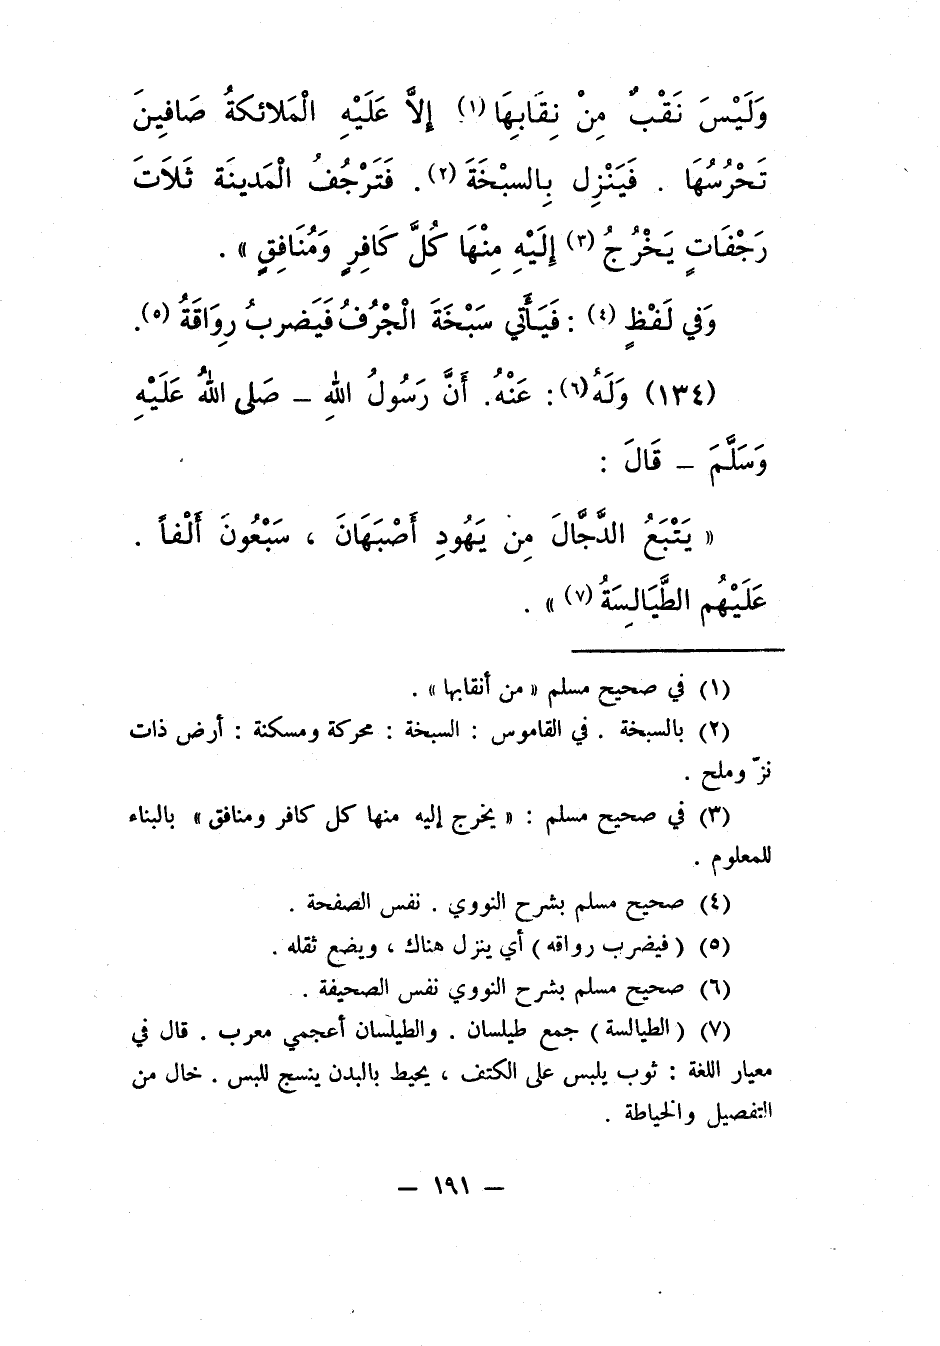 وَلَيْسَ نَقْبٌ مِنْ نِقَابِهَا (١) إِلاَّ عَلَيْهِ الْمَلائكةُ صَافِينَ
تَحْرُسُهَا . فَيَنْزِل بِالسبْخَةَ (٢) . فَتَرْجُفُ الْمَدينَة ثَلَاثَ
رَجْفَاتٍ يَخْرُجُ (٣) إِلَيْهِ مِنْهَا كُلُّ كَافِرٍ وَمُنَافِقٍ » .
وَفي لَفْظٍ (٤) : فَيَأْتي سَبْخَةَ الْجُرُفُ فَيَضربُ رِوَاقَةُ (٥) .
(١٣٤) وَلَهُ (٦) : عَنْهُ . أَنَّ رَسُولُ اللهِ – صَلى اللهُ عَلَيْهِ
وَسَلَّمَ – قَالَ :
« يَتْبَعُ الدَّجَّالَ مِن يَهُودِ أَصْبَهَانَ ، سَبْعُونَ أَلْفاً .
عَلَيْهُم الطَّيَالِسَةُ (٧) » .
(١) في صحيح مسلم « من أنقابها » .
(٢) بالسبخة . في القاموس : السبخة : محركة ومسكنة : أرض ذات
نزّ وملح .
(٣) في صحيح مسلم : « يخرج إليه منها كل كافر ومنافق » بالبناء
للمعلوم .
(٤) صحيح مسلم بشرح النووي . نفس الصفحة .
(٥) ( فيضرب رواقه ) أي ينزل هناك ، ويضع ثقله .
(٦) صحيح مسلم بشرح النووي نفس الصحيفة .
(٧) ( الطيالسة ) جمع طيلسان . والطيلسان أعجمي معرب . قال في
معيار اللغة : ثوب يلبس على الكتف ، يحيط بالبدن ينسج للبس . خال من
التفصيل والخياطة .
– ١٩١ –